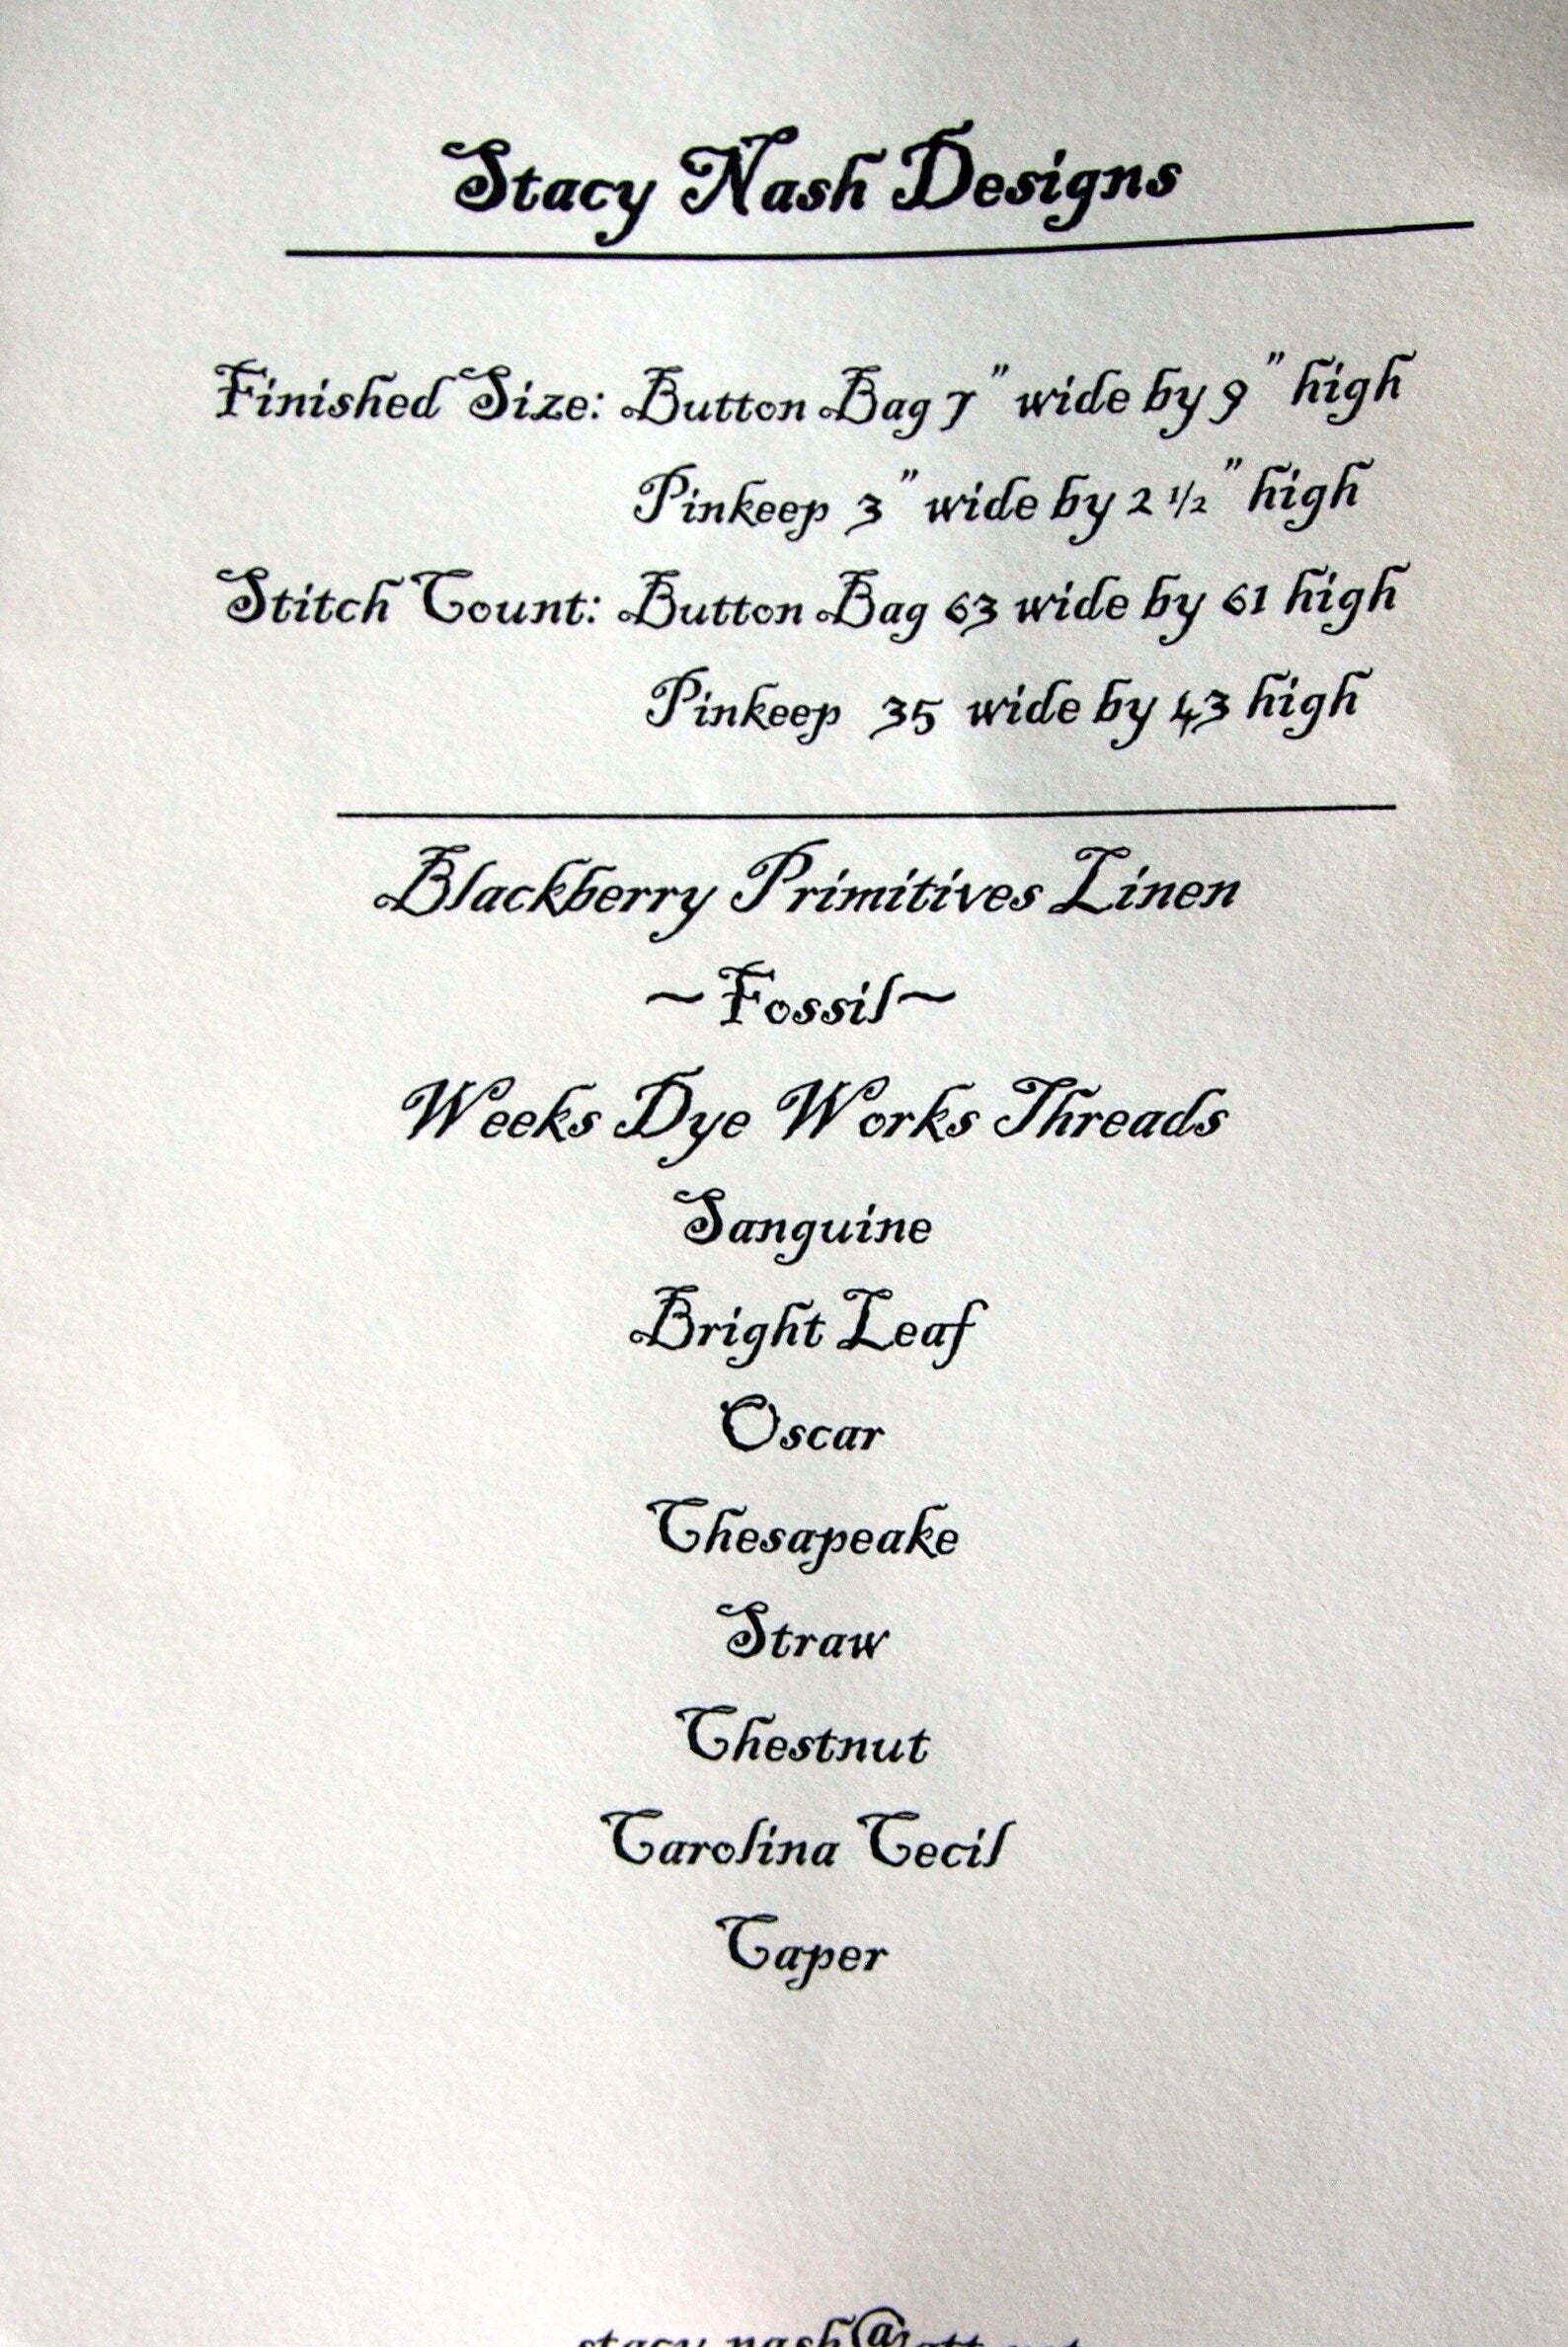 Stacy Nash Designs
Finished Size: Button Bag 7" wide by 9" high
Pinkeep 3" wide by 2 1/2" high
Stitch Count: Button Bag 63 wide by 61 high
Pinkeep 35 wide by 43 high
Blackberry Primitives Linen
~Fossil~
Weeks Dye Works Threads
Sanguine
Bright Leaf
Oscar
Chesapeake
Straw
Chestnut
Carolina Cecil
Caper